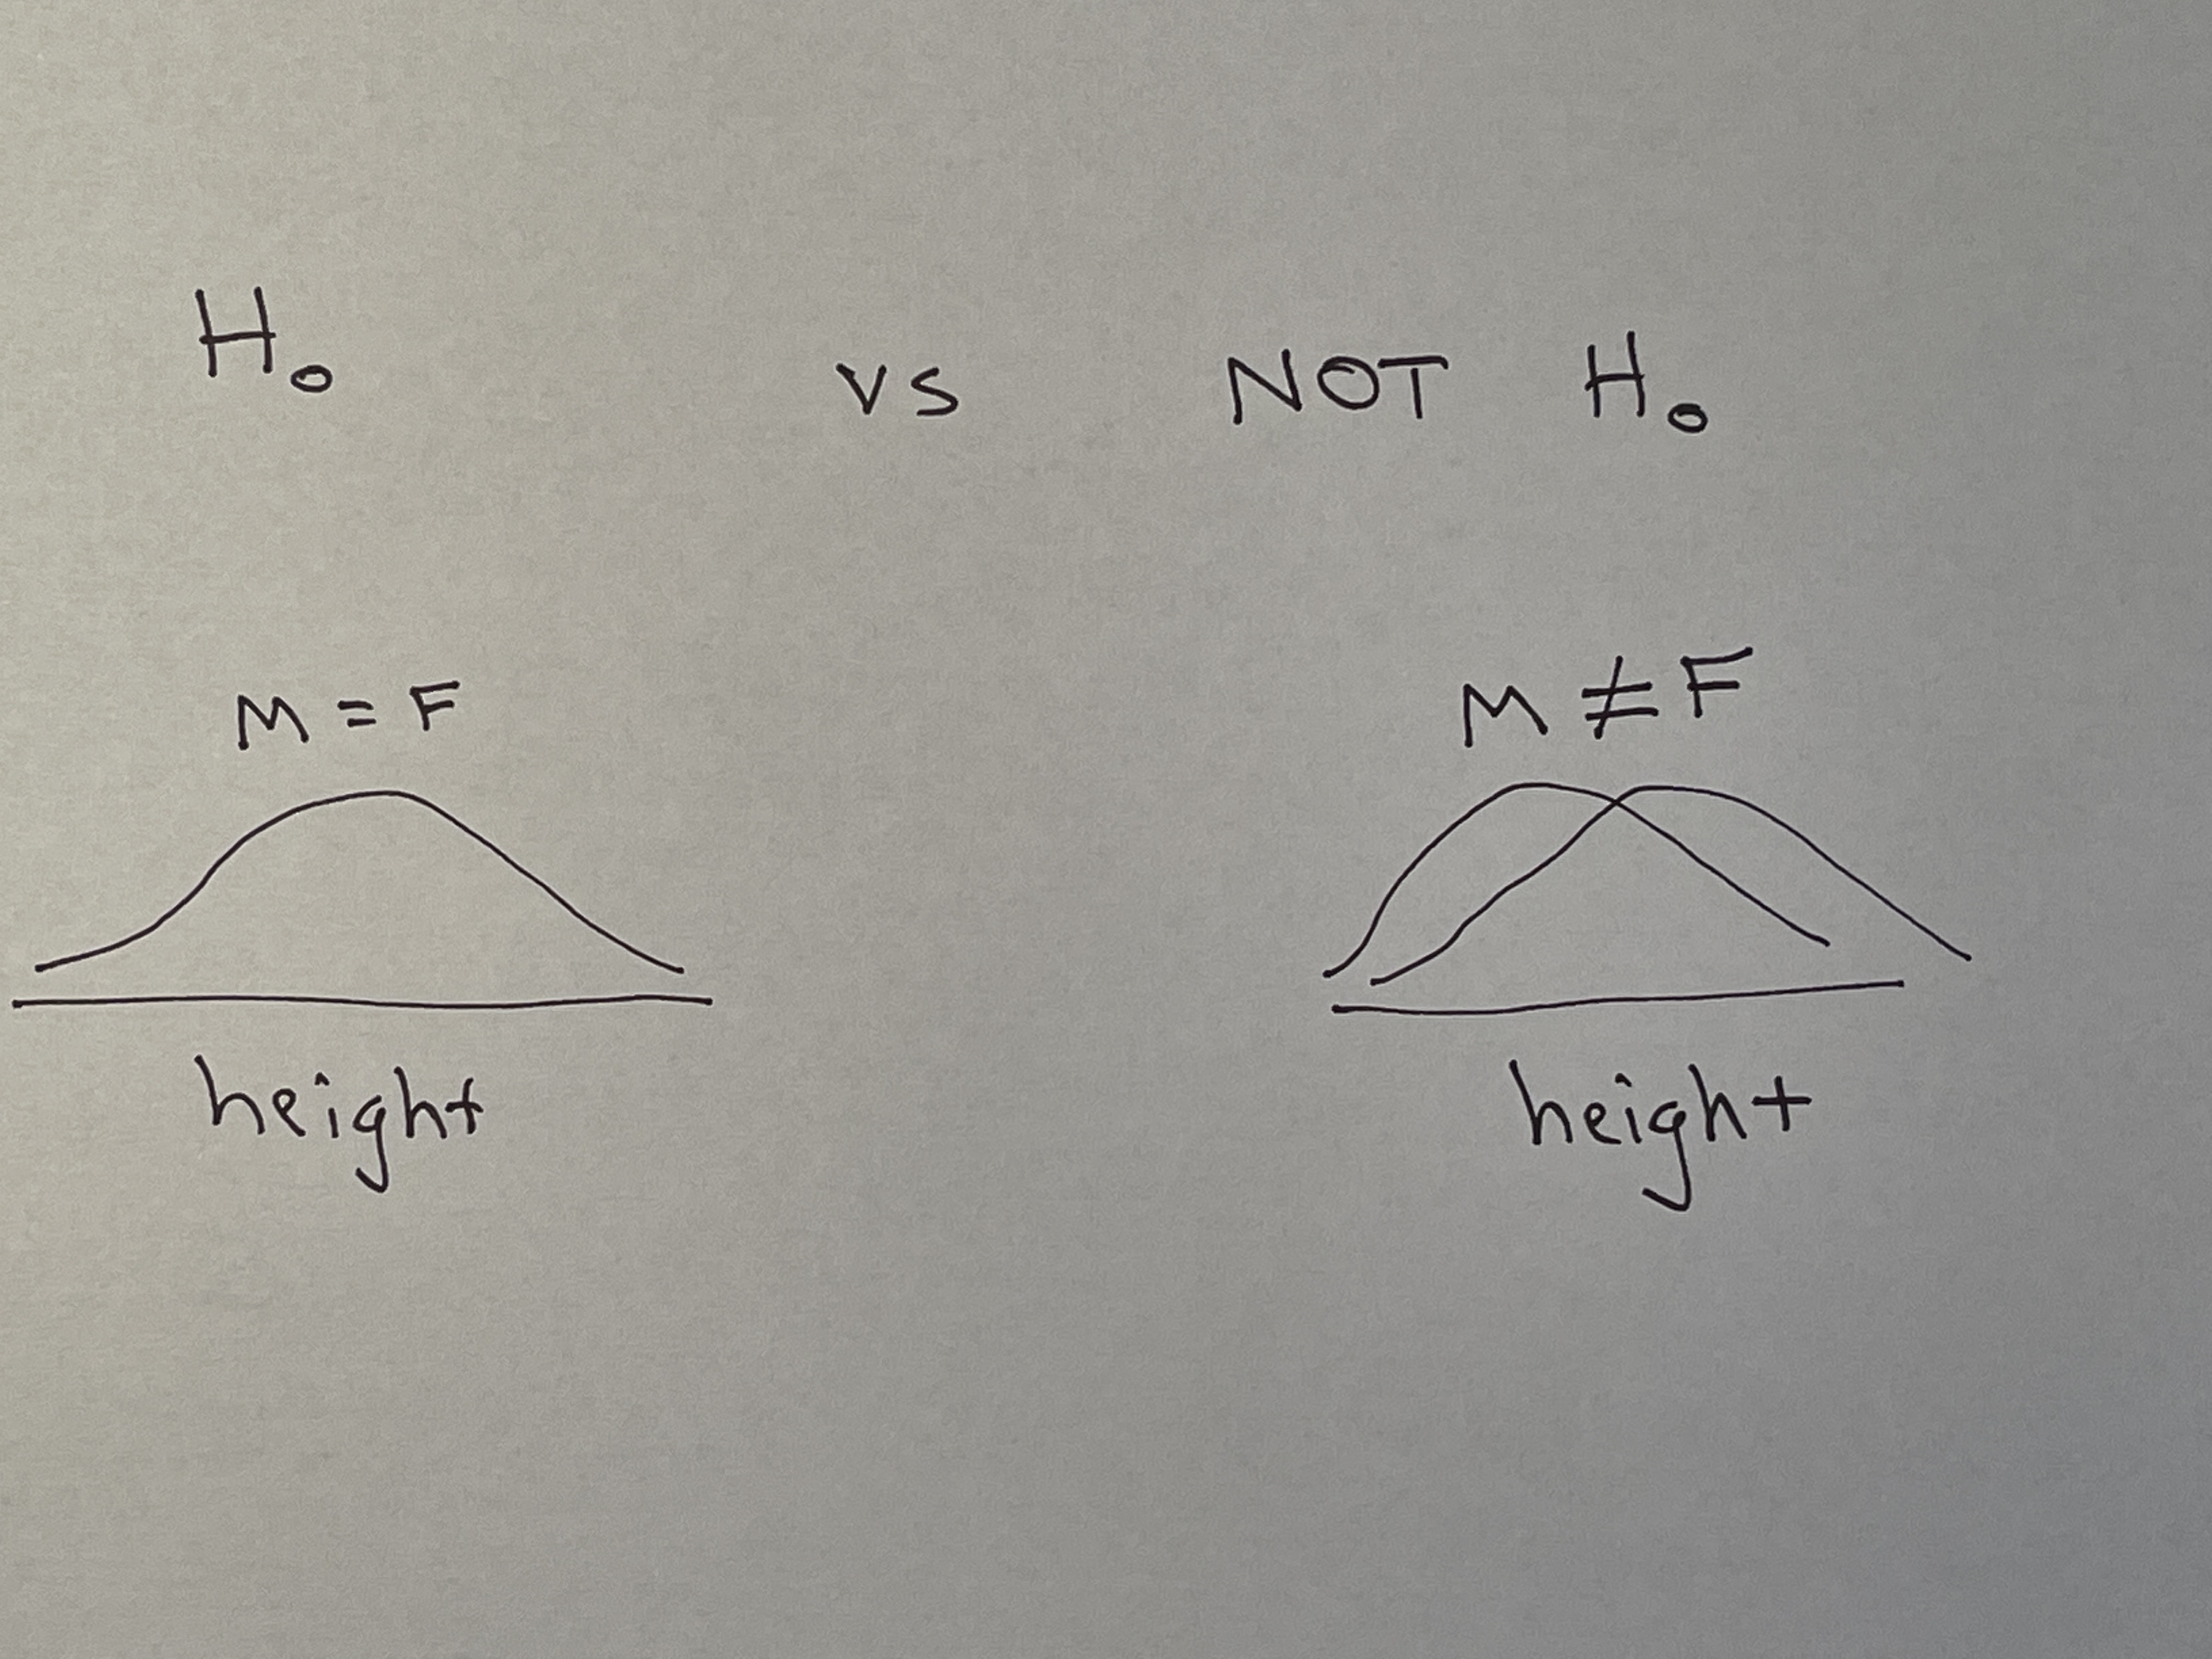 H₀ vs NOT H₀
M = F M ≠ F
height height